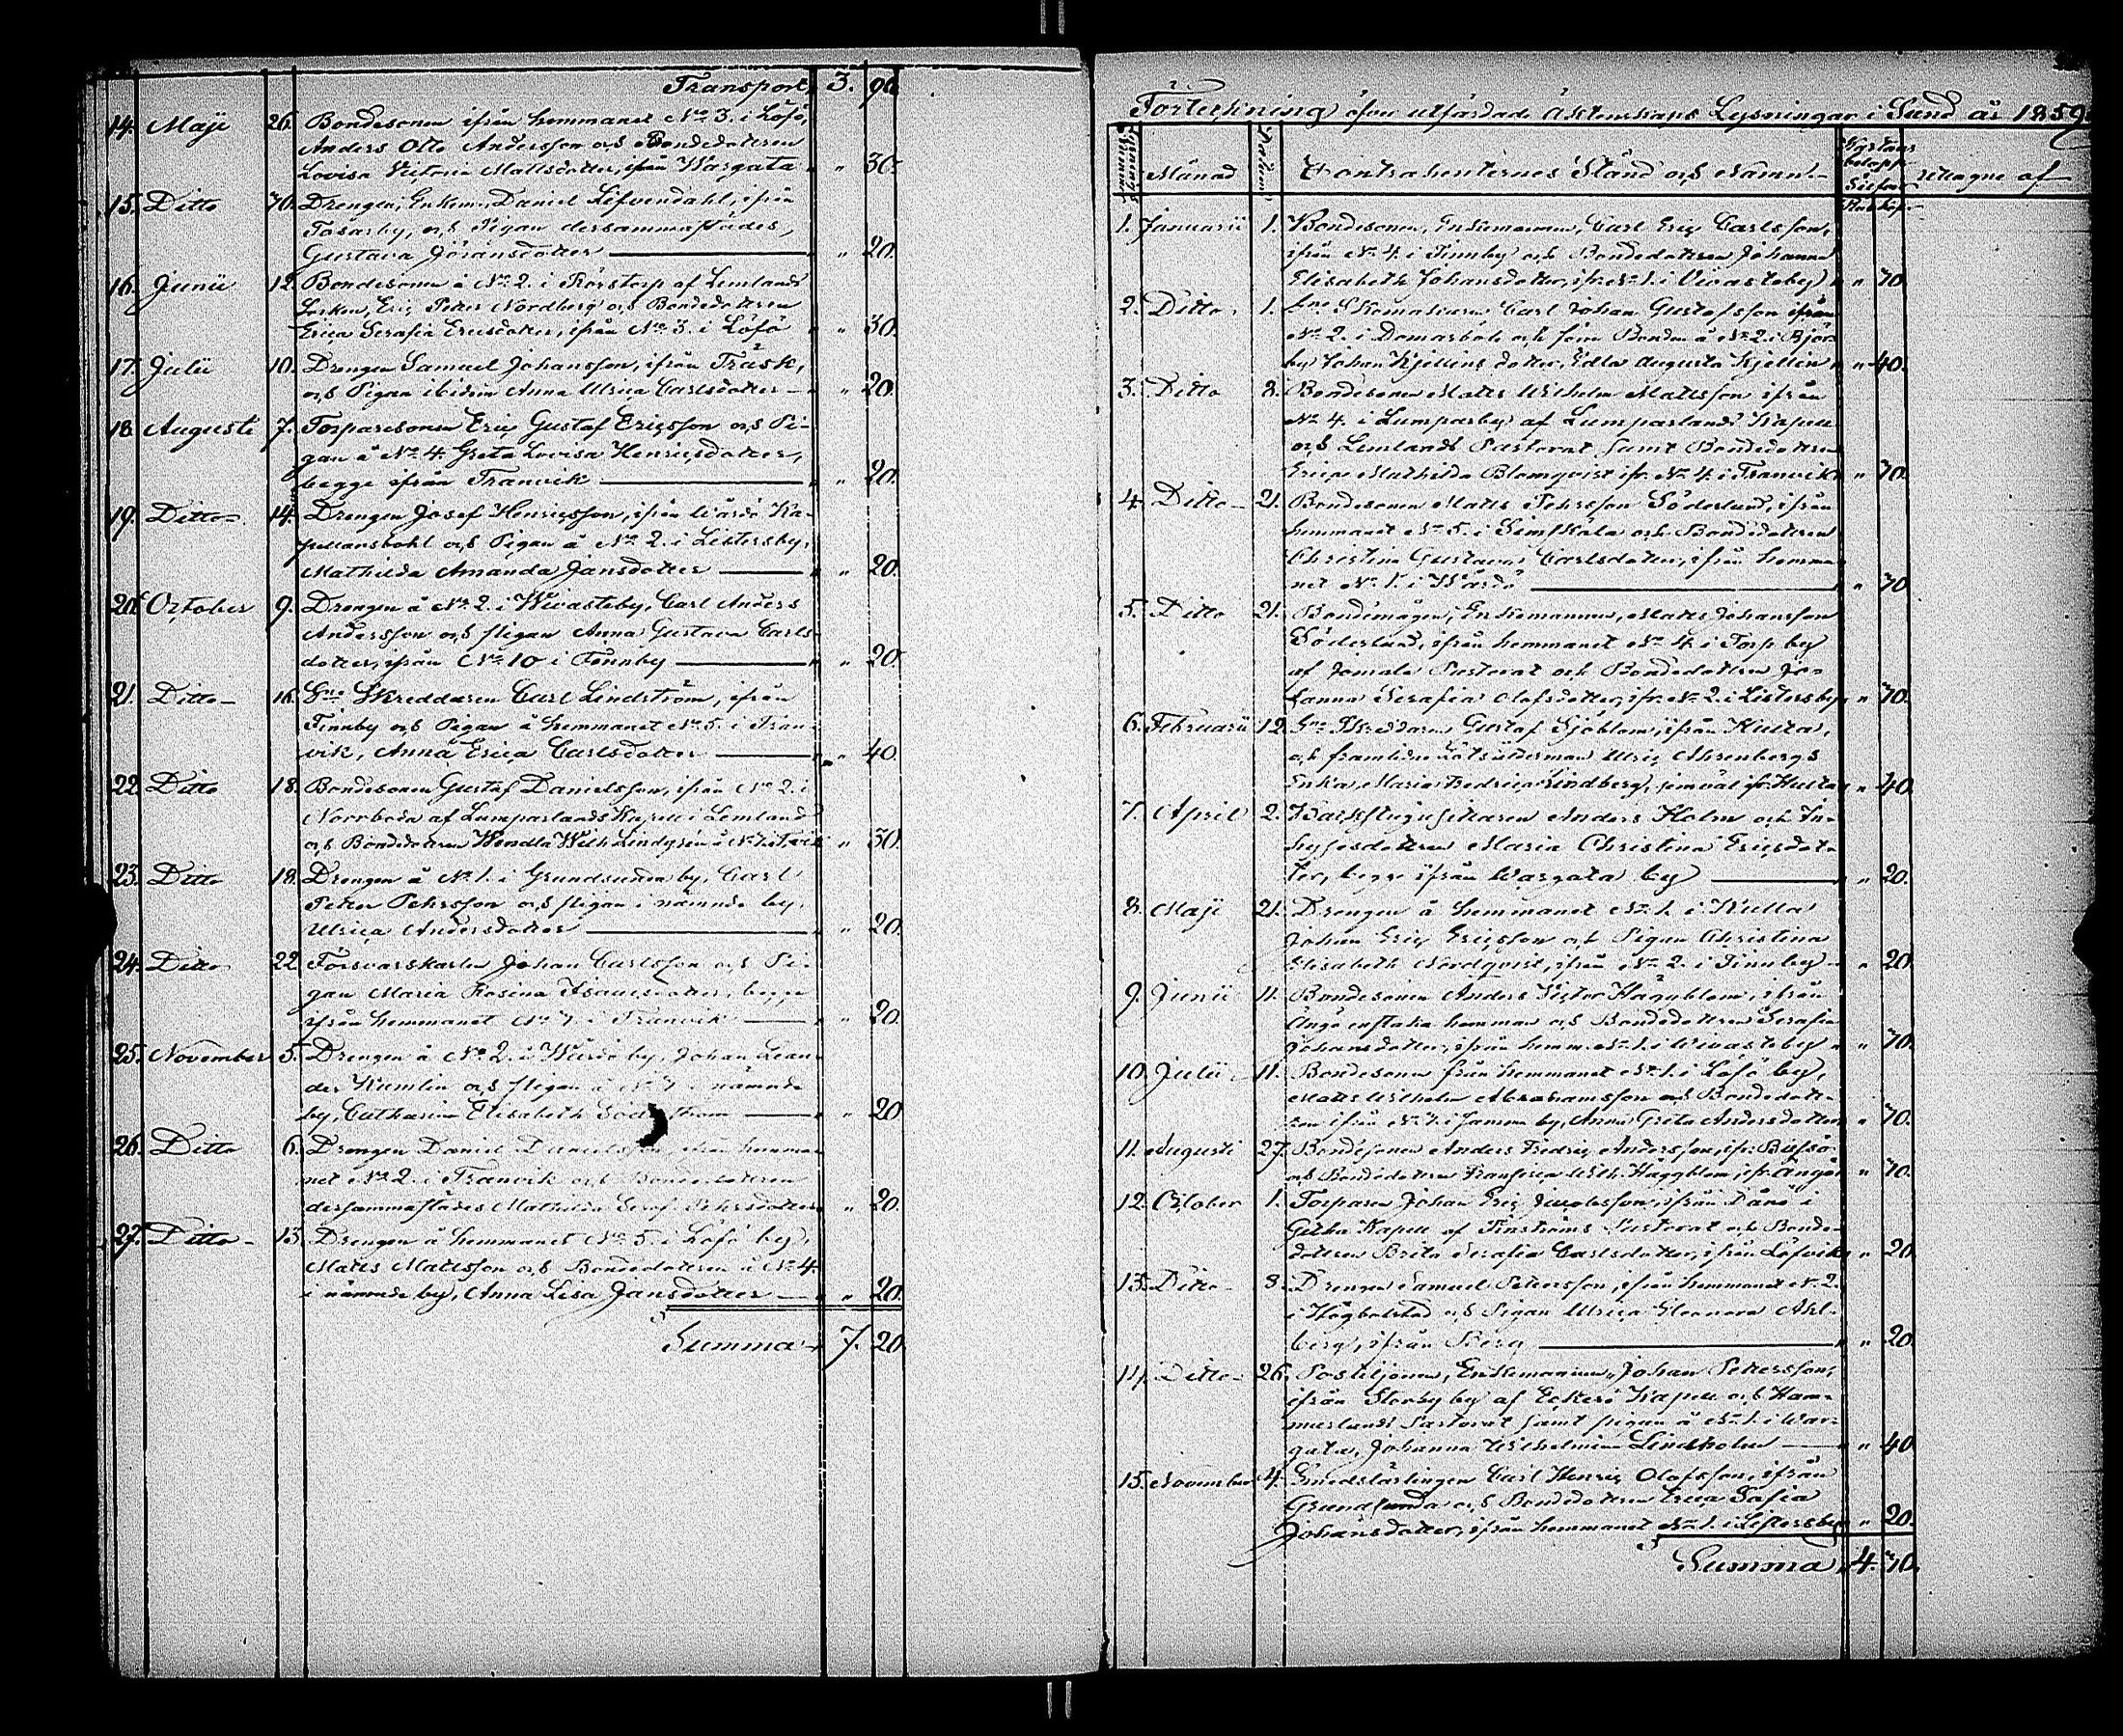 Transport 3. 90.
14. Maji 26. Bondesonen ifrån hemmanet No 3. i Löfö,
Anders Otto Andersson och Bondedottren
Lovisa Victoria Mattsdotter, ifrån Wargata " 30.
15. Ditto 30. Drengen, Enkem., Daniel Löfvendahl, ifrån
Tosarby, och Pigan dersammastädes,
Gustava Jöransdotter " 20.
16. Junii 12. Bondesonen å No 2. i Rörstorp af Lemlands
Socken, Eric Peter Nordberg och Bondedottren
Erica Serafia Ericsdotter, ifrån No 3. i Löfö " 30.
17. Julii 10. Drengen Samuel Johansson, ifrån Träsk,
och Pigan ibidem Anna Ulrica Carlsdotter " 20.
18. Augusti 7. Torparesonen Eric Gustaf Ericsson och Pi-
gan å No 4. Greta Lovisa Henricsdotter,
begge ifrån Tranvik " 20.
19. Ditto 14. Drengen Josef Henricsson, ifrån Wårdö Ka-
pellansbohl och Pigan å No 2. i Listersby,
Mathilda Amanda Jansdotter " 20.
20. October 9. Drengen å No 2. i Wivasteby, Carl Anders
Andersson och pigan Anna Gustava Carls-
dotter, ifrån No 10 i Finnby " 20.
21. Ditto 16. Sne Skreddaren Carl Lindström, ifrån
Finnby och Pigan å hemmanet No 5. i Tran-
vik, Anna Erica Carlsdotter " 40.
22. Ditto 18. Bondesonen Gustaf Danielsson, ifrån No 2. i
Norrboda af Lumparlands Kapell i Lemland
och Bondedottren Wendla Wilh. å No 1. i " 30.
23. Ditto 18. Drengen å No 1. i Grundsunda by, Carl
Petter Pehrsson och pigan i nämnde by,
Ulrica Andersdotter " 20.
24. Ditto 22. Försvarskarlen Johan Carlsson och Pi-
gan Maria Rosina Isacsdotter, begge
ifrån hemmanet No 7. i Tranvik " 20.
25. November 5. Drengen å No 2. i Wårdö by, Johan Lean-
der Kumlin och pigan å No 7 i nämnde
by, Catharina Elisabeth Söderström " 20
26. Ditto 6. Drengen Daniel Danielsson, ifrån hemma-
net No 2. i Tranvik och Bondedottren
dersammastädes Mathilda Seraf. Pehrsdotter " 20.
27. Ditto 13. Drengen å hemmanet No 5. i Löfö by,
Matts Mattsson och Bondedottren å No 4.
i nämnde by, Anna Lisa Jansdotter " 20.
Summa 7. 20.
Förteckning öfver utfärdade Äktenskaps Lysningar i Sund år 1859.
Månad Contrahenternes Stånd och Namn belopp Silfver uttagne af
1. Januarii 1. Bondesonen, Enkemannen, Carl Eric Carlsson,
ifrån No 4. i Finnby och Bondedottren Johanna
Elisabeth Johansdotter, ifr. No 1. i Vivasteby " 70.
2. Ditto 1. Sne Skomakaren Carl Johan Gustafsson ifrån
No 2. i Domarböle och förre Bonden å No 2. i Björ-
by Johan Kjellins dotter, Edla Augusta Kjellin " 40.
3. Ditto 8. Bondesonen Matts Wilhelm Mattsson ifrån
No 4. i Lumparby af Lumparlands Kapell
och Lemlands Pastorat, samt Bondedottren
Erica Mathilda Blomqvist ifr. No 4. i Tranvik " 70.
4. Ditto 21. Bondesonen Matts Pehrsson Söderlund, ifrån
hemmanet No 5. i Simskäla och Bondedottren
Christina Gustava Carlsdotter, ifrån hemma-
net No 1. i Wårdö " 70
5. Ditto 21. Bondemågen, Enkemannen, Matts Johansson
Söderlund, ifrån hemmanet No 4. i Torp by
af Jomala Pastorat och Bondedottren Jo-
hanna Serafia Olofsdotter, ifr. No 2. i Listersby " 70.
6. Februarii 12. Sne Skreddaren Gustaf Sjöblom, ifrån Hulta,
och framlidne Lotsålderman Ulric Ahrenbergs
Enka Maria Fredrica Lindberg, jemväl ifr. Hulta " 40.
7. April 2. Anders Holm och In-
hysesdottren Maria Christina Ericsdot-
ter, begge ifrån Wargata by " 20.
8. Maji 21. Drengen å hemmanet No 1. i Kulla
Johan Eric Ericsson och Pigan Christina
Elisabeth Nordqvist, ifrån No 2. i Finnby " 20.
9. Junii 11. Bondesonen Anders Victor Häggblom, ifrån
Ängö enstaka hemman och Bondedottren Serafia
Johansdotter, ifrån hemm. No 1. i Wivasteby " 70.
10. Julii 11. Bondesonen från hemmanet No 1. i Löfö by,
Matts Wilhelm Abrahamsson och Bondedott-
ren ifrån No 1. i by, Anna Greta Andersdotter " 70.
11. Augusti 27. Bondesonen Anders Fredric Andersson, ifr. Bussö
och Bondedottren Wilh. Häggblom, ifr. Ängö " 70.
12. October 1. Torparen Johan Eric Jacobsson, ifrån Pånö i
Geta Kapell af Finströms Pastorat och Bonde-
dottren Brita Serafia Carlsdotter, ifrån Löfvik " 20.
13. Ditto 8. Drengen Samuel Pettersson, ifrån hemmanet No 2.
i Högbolstad och Pigan Ulrica Eleonora Ahl-
berg, ifrån Berg " 20.
14. Ditto 26. Postiljonen, Enkemannen, Johan Pettersson,
ifrån Storby by af Eckerö Kapell och Ham-
marlands Pastorat samt pigan å No 1. i War-
gata, Johanna Wilhelmina Lindholm " 40
15. November 4. Smedslärlingen Carl Henric Olofsson, ifrån
Grundsunda och Bondedottren Erica Sofia
Johansdotter, ifrån hemmanet No 1. i Listersby " 20.
Summa 4. 70.